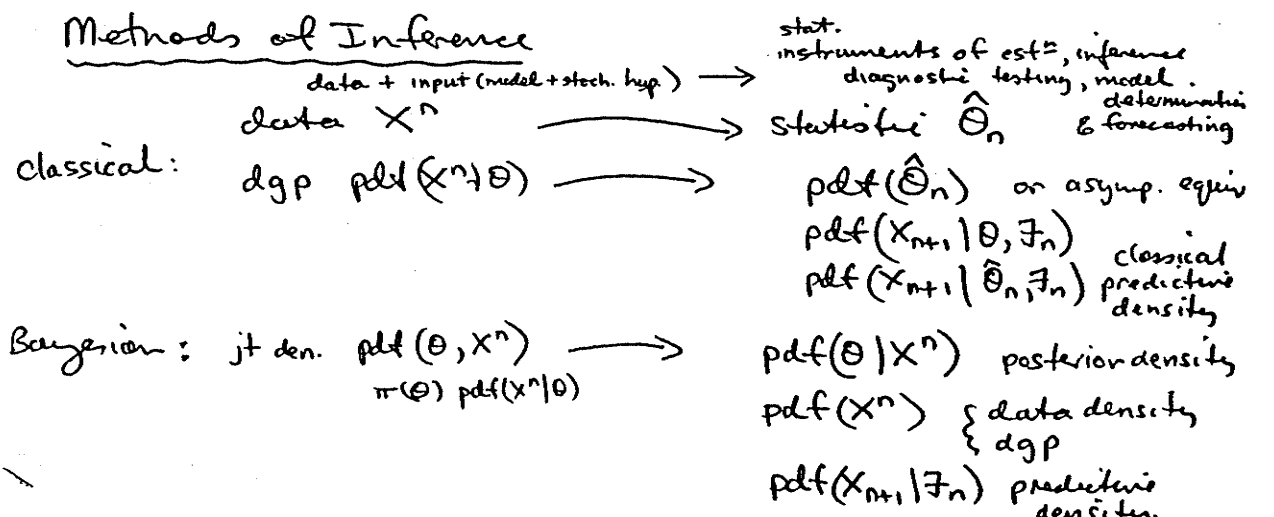 Methods of Inference
stat.
instruments of estⁿ, inference
data + input (model + stoch. hyp.) ⟶ diagnostic testing, model
determination
& forecasting
data Xⁿ ⟶ statistic θ̂ₙ
classical: dgp pdf(Xⁿ|θ) ⟶ pdf(θ̂ₙ) or asymp. equiv
pdf(Xₙ₊₁|θ, ℱₙ)
pdf(Xₙ₊₁|θ̂ₙ, ℱₙ) classical
predictive
density
Bayesian: jt den. pdf(θ, Xⁿ) ⟶ pdf(θ|Xⁿ) posterior density
π(θ) pdf(Xⁿ|θ)
pdf(Xⁿ) { data density
dgp
pdf(Xₙ₊₁|ℱₙ) predictive
density.